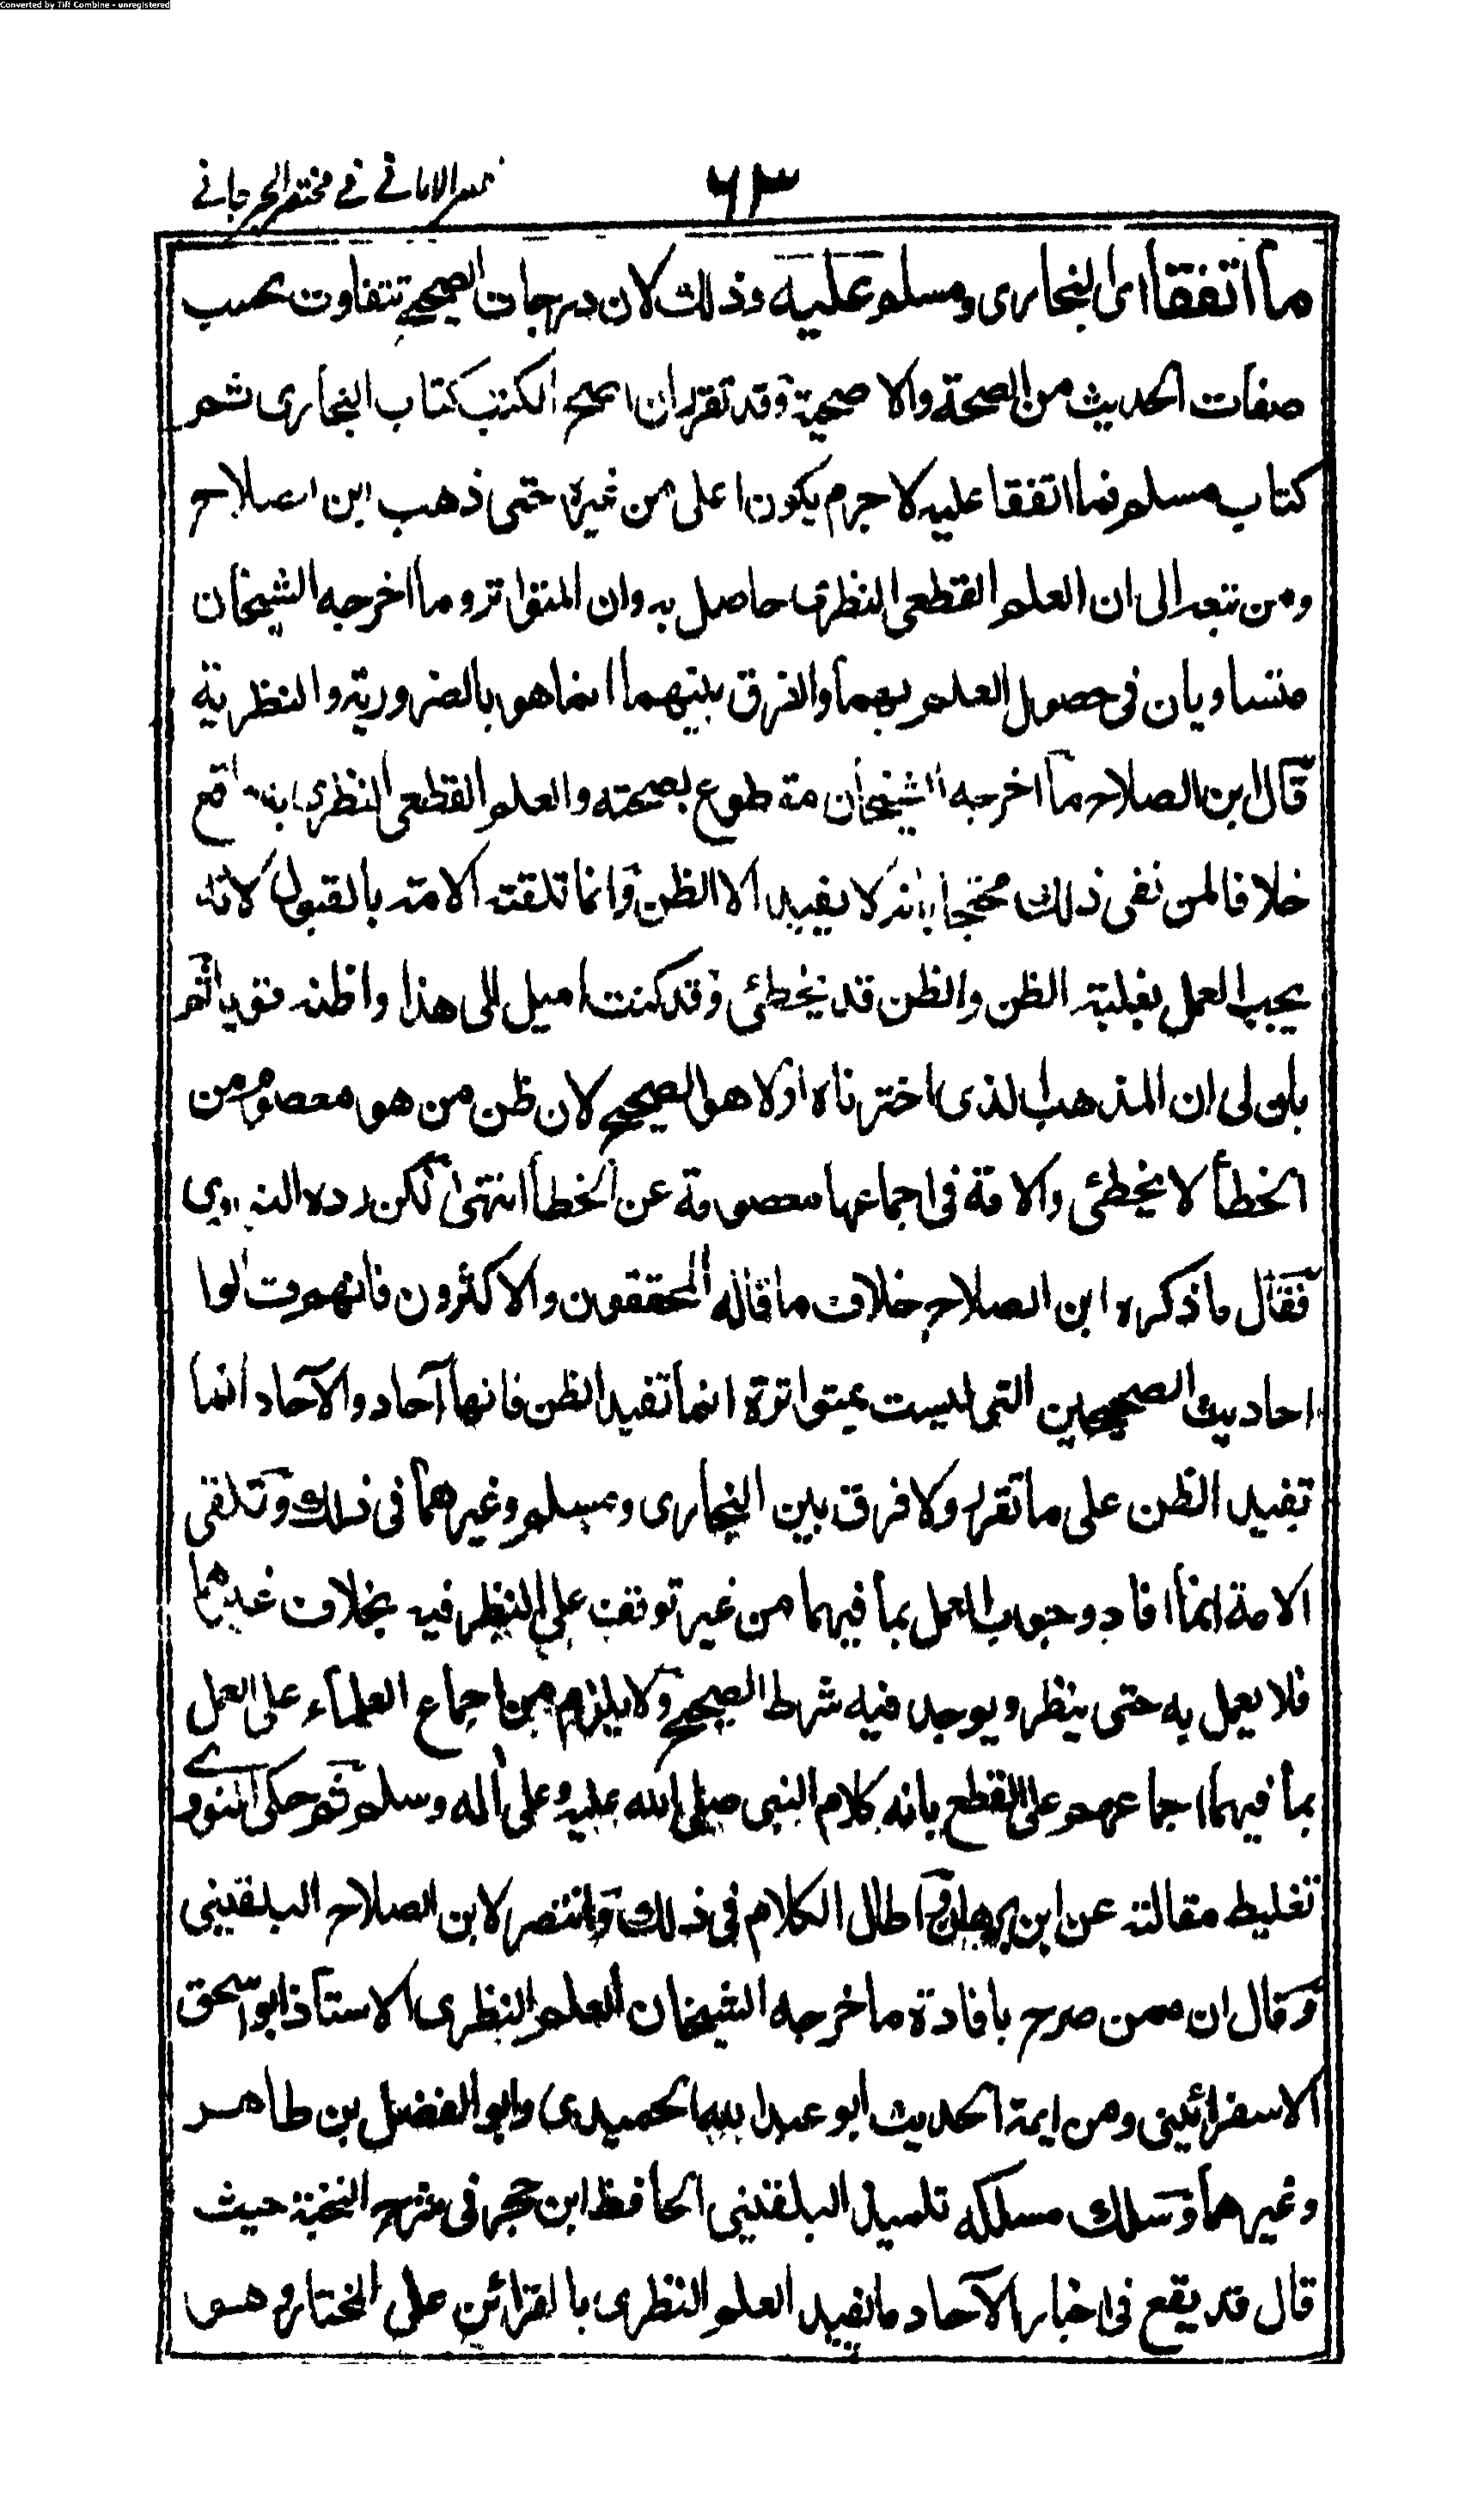 Converted by Tiff Combine - unregistered
۶۳
ظفر الامانے فے مختصر الجرجانے
ما اتفقا ای البخاری ومسلم علیه وذلك لان درجات الصحیح تتفاوت بحسب
صفات الحدیث من الصحة والاصحیة وقد تقرر ان اصح الکتب کتاب البخاری ثم
کتاب مسلم فما اتفقا علیه لاجرم یکون اعلی من غیره حتی ذهب ابن الصلاح
ومن تبعه الی ان العلم القطعی النظری حاصل به وان المتواتر وما اخرجه الشیخان
متساویان فی حصول العلم بهما والفرق بینهما انما هو بالضروریة والنظریة
قال ابن الصلاح ما اخرجه الشیخان مقطوع بصحته والعلم القطعی النظری به واقع
خلافا لمن نفی ذلك محتجا بانه لا یفید الا الظن وانما تلقته الامة بالقبول لانه
یجب العمل بغلبة الظن والظن قد یخطئ وقد کنت امیل الی هذا واظنه قویا ثم
بان لی ان المذهب الذی اخترناه اولا هو الصحیح لان ظن من هو معصوم من
الخطأ لا یخطئ والامة فی اجماعها معصومة عن الخطأ انتهی لکن رده النووی
فقال ما ذکره ابن الصلاح خلاف ما قاله المحققون والاکثرون فانهم قالوا
احادیث الصحیحین التی لیست بمتواترة انما تفید الظن فانها آحاد والآحاد انما
تفید الظن علی ما تقرر ولا فرق بین البخاری ومسلم وغیرهما فی ذلك وتلقی
الامة انما افاد وجوب العمل بما فیهما من غیر توقف علی النظر فیه بخلاف غیرهما
فلا یعمل به حتی ینظر ویوجد فیه شرط الصحیح ولا یلزم من اجماع العلماء علی العمل
بما فیهما اجماعهم علی القطع بانه کلام النبی صلی الله علیه وعلی آله وسلم ثم حکی النووے
تغلیط مقالته عن ابن برهان واطال الکلام فی ذلك وانتصر لابن الصلاح البلقینی
وقال ان ممن صرح بافادة ما خرجه الشیخان العلم النظری الاستاذ ابو اسحق
الاسفرائینی ومن ایمة الحدیث ابو عبد الله الحمیدی وابو الفضل بن طاهر
وغیرهما وسلك مسلکه تلمیذ البلقینی الحافظ ابن حجر فی شرح النخبة حیث
قال قد یقع فی اخبار الآحاد ما یفید العلم النظری بالقرائن علی المختار وهو